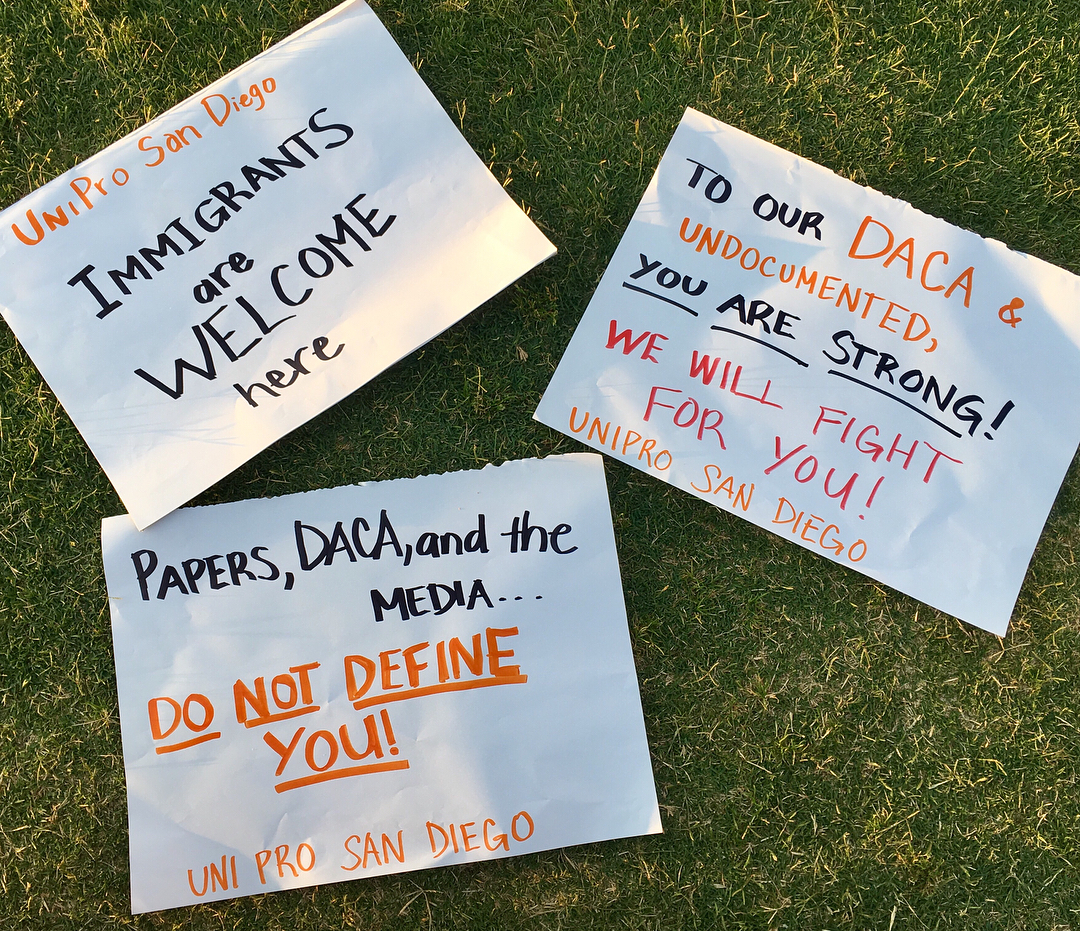 UniPro San Diego
IMMIGRANTS
are
WELCOME
here
TO OUR DACA &
UNDOCUMENTED,
YOU ARE STRONG!
WE WILL FIGHT
FOR YOU!
UNIPRO SAN DIEGO
PAPERS, DACA, and the
MEDIA...
DO NOT DEFINE
YOU!
UNI PRO SAN DIEGO